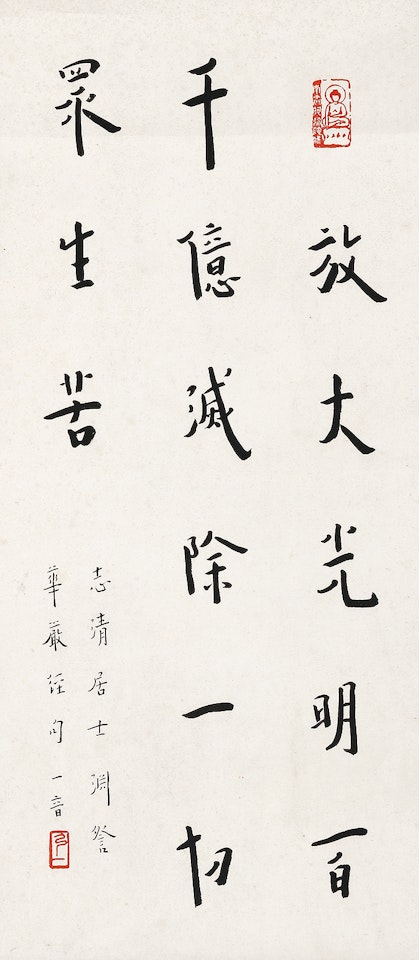 放大光明百
千億滅除一切
眾生苦
志清居士淵詧
華嚴經句 一音